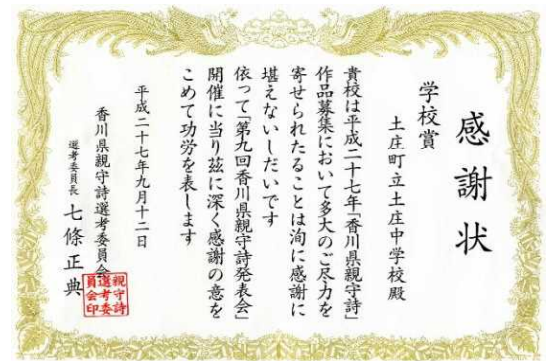 感謝状
学校賞
土庄町立土庄中学校殿
貴校は平成二十七年「香川県親守詩」
作品募集において多大のご尽力を
寄せられたることは洵に感謝に
堪えないしだいです
依って「第九回香川県親守詩発表会」
開催に当り茲に深く感謝の意を
こめて功労を表します
平成二十七年九月十二日
香川県親守詩選考委員会
選考委員長 七條正典
親守詩
選考委
員会印